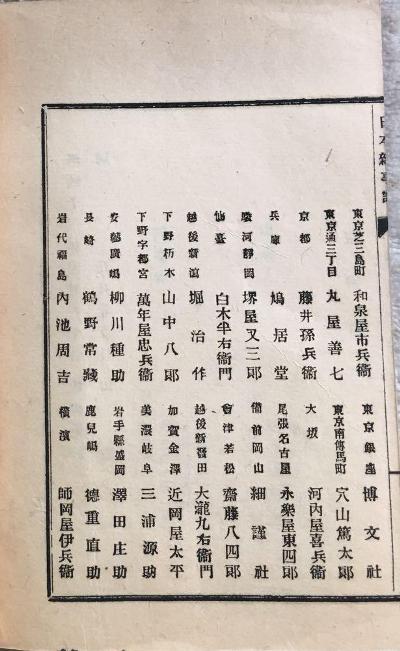 東京芝三島町 和泉屋市兵衞 東京銀座 博文社
東京通三丁目 丸屋善七 東京南傳馬町 穴山篤太郎
京都 藤井孫兵衞 大坂 河內屋喜兵衞
兵庫 鳩居堂 尾張名古屋 永樂屋東四郎
駿河靜岡 堺屋又三郎 備前岡山 細謹社
仙臺 白木半右衞門 會津若松 齋藤八四郎
越後新瀉 堀治作 越後新發田 大瀧九右衞門
下野栃木 山中八郎 加賀金澤 近岡屋太平
下野宇都宮 萬年屋忠兵衞 美濃岐阜 三浦源助
安藝廣嶋 柳川種助 岩手縣盛岡 澤田庄助
長崎 鶴野常藏 鹿兒嶋 德重直助
岩代福島 內池周吉 橫濱 師岡屋伊兵衞